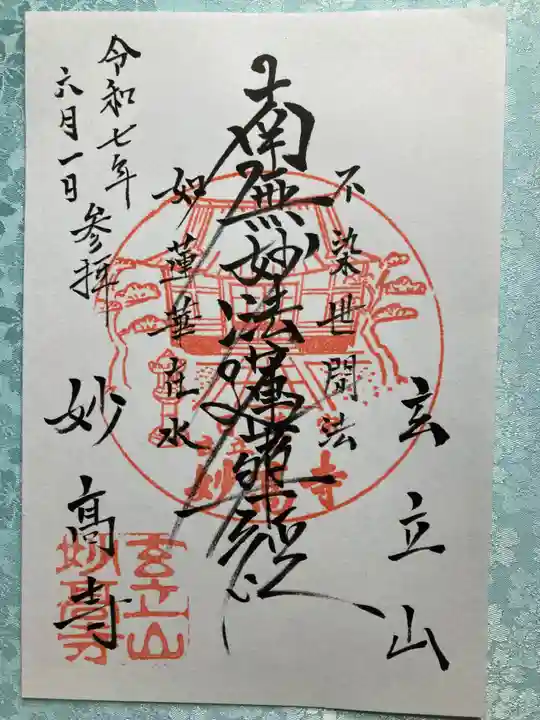 玄立山
不染世間法
南無妙法蓮華経
如蓮華在水
令和七年
六月一日 参拝
妙高寺
玄立山
妙高寺